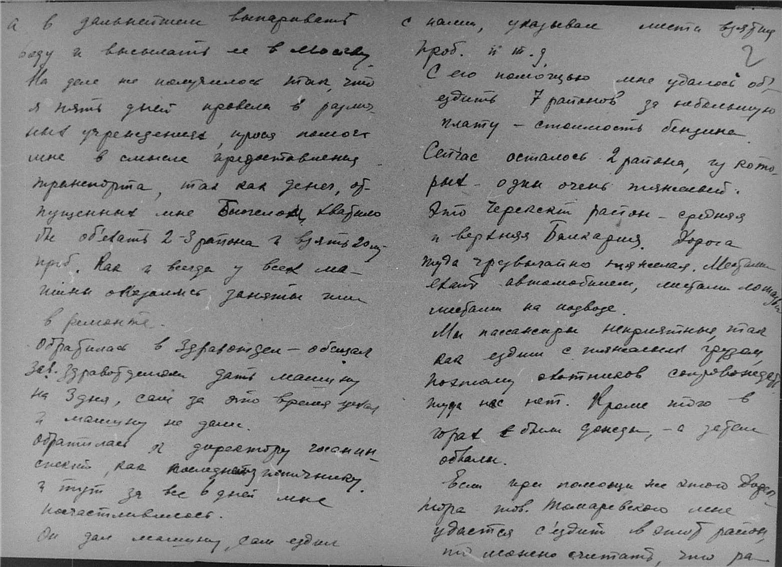 а в дальнейшем выпаривать
воду и высылать ее в Москву.
На деле же получилось так, что
я пять дней провела в различ-
ных учреждениях, прося помочь
мне в смысле предоставления
транспорта, так как денег, от-
пущенных мне Биогелом, хватило
бы об'ехать 2-3 района и взять 20 лит.
проб. Как и всегда у всех ма-
шины оказались заняты или
в ремонте.
Обратилась в Здравотдел – обещал
зав. Здравотделом дать машину
на 3 дня, сам за это время уехал
и машину не дали.
Обратилась к директору госин-
спекции, как последнему источнику
и тут за все 6 дней мне
посчастливилось.
Он дал машину, сам ездил
с нами, указывал места взятия
проб. и т.д.
2
С его помощью мне удалось об'-
ездить 7 районов за небольшую
плату – стоимость бензина.
Сейчас осталось 2 района, из кото-
рых – один очень тяжелый.
Это Черекский район – средняя
и верхняя Балкария. Дорога
туда чрезвычайно тяжелая. Местами
едут автомобилем, местами лошадью
местами на подводе.
Мы пассажиры неприятные, так
как ездим с тяжелым грузом
поэтому охотников сопровождать
туда нас нет. Кроме того в
горах были дожди, – а затем
обвалы.
Если при помощи же этого
тов. Томаревского мне
удастся с'ездить в этот район,
то можно считать, что ра-